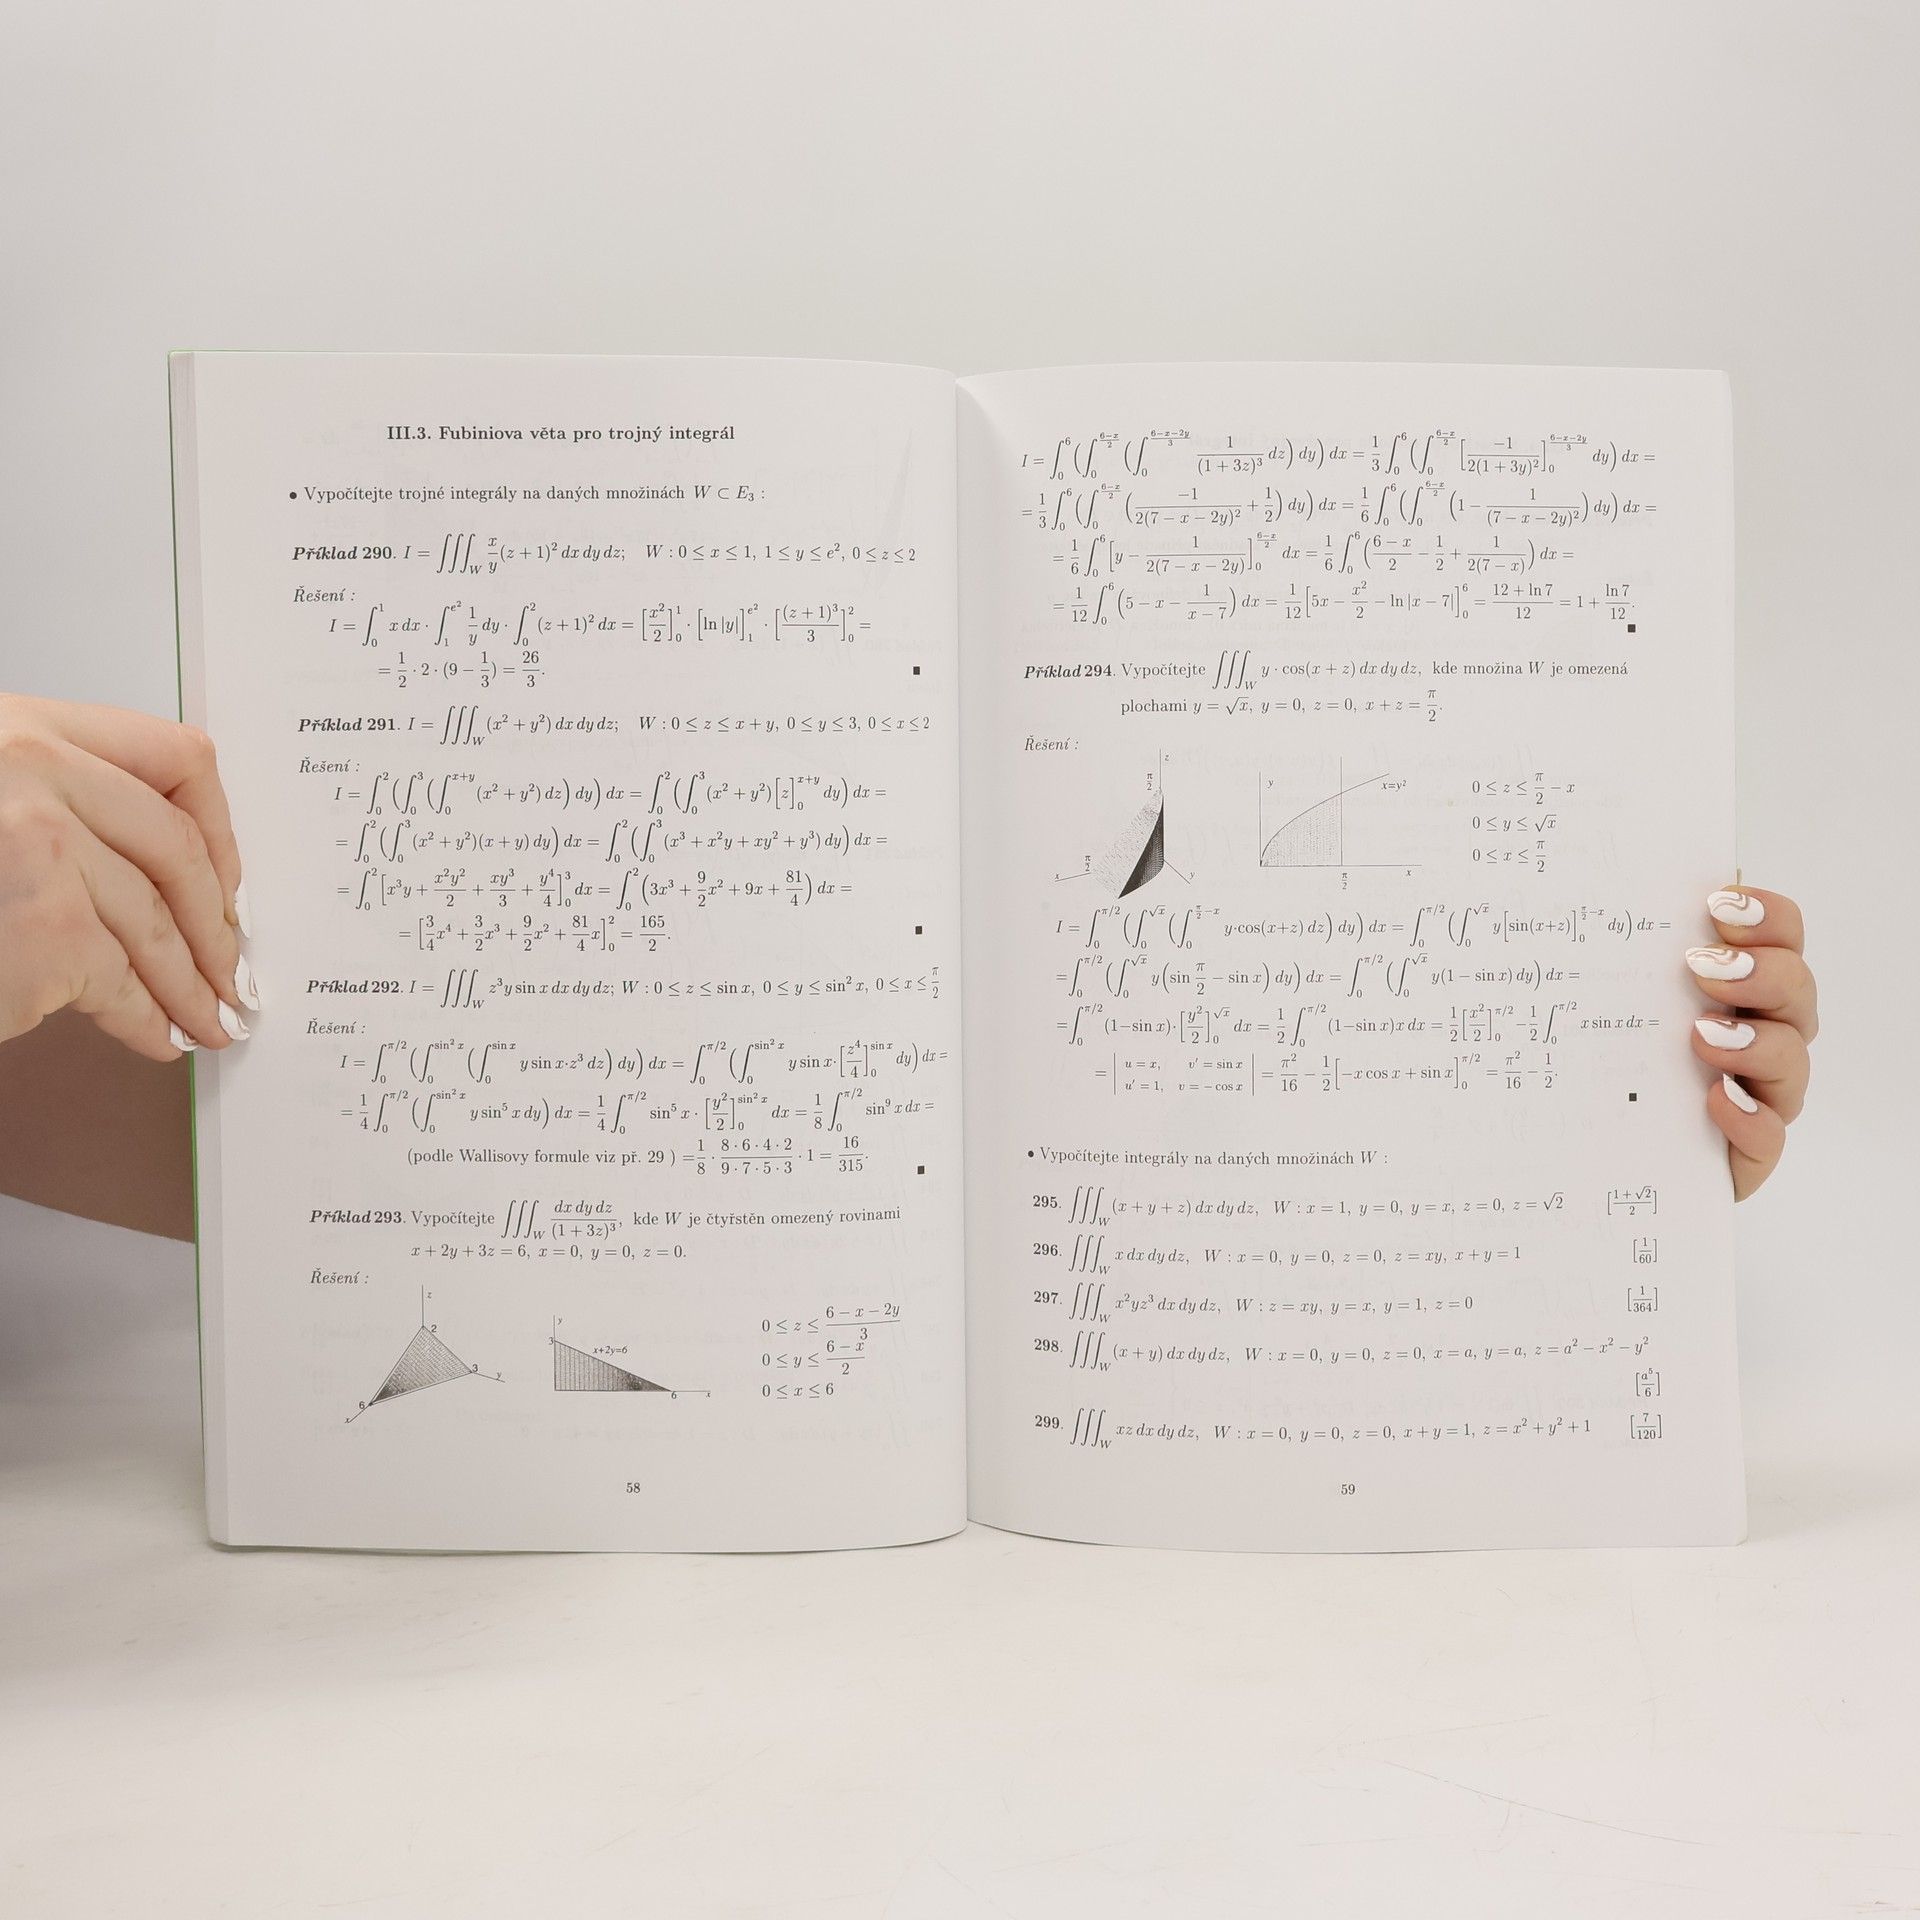 III.3. Fubiniova věta pro trojný integrál
• Vypočítejte trojné integrály na daných množinách W ⊂ E₃ :
Příklad 290. I = ∭_W x/y (z + 1)² dx dy dz; W : 0 ≤ x ≤ 1, 1 ≤ y ≤ e², 0 ≤ z ≤ 2
Řešení :
I = ∫₀¹ x dx · ∫₁^{e²} 1/y dy · ∫₀² (z + 1)² dx = [x²/2]₀¹ · [ln |y|]₁^{e²} · [(z + 1)³/3]₀² =
= 1/2 · 2 · (9 − 1/3) = 26/3.
■
Příklad 291. I = ∭_W (x² + y²) dx dy dz; W : 0 ≤ z ≤ x + y, 0 ≤ y ≤ 3, 0 ≤ x ≤ 2
Řešení :
I = ∫₀² (∫₀³ (∫₀^{x+y} (x² + y²) dz) dy) dx = ∫₀² (∫₀³ (x² + y²)[z]₀^{x+y} dy) dx =
= ∫₀² (∫₀³ (x² + y²)(x + y) dy) dx = ∫₀² (∫₀³ (x³ + x²y + xy² + y³) dy) dx =
= ∫₀² [x³y + x²y²/2 + xy³/3 + y⁴/4]₀³ dx = ∫₀² (3x³ + 9/2 x² + 9x + 81/4) dx =
= [3/4 x⁴ + 3/2 x³ + 9/2 x² + 81/4 x]₀² = 165/2.
■
Příklad 292. I = ∭_W z³y sin x dx dy dz; W : 0 ≤ z ≤ sin x, 0 ≤ y ≤ sin² x, 0 ≤ x ≤ π/2
Řešení :
I = ∫₀^{π/2} (∫₀^{sin² x} (∫₀^{sin x} y sin x·z³ dz) dy) dx = ∫₀^{π/2} (∫₀^{sin² x} y sin x·[z⁴/4]₀^{sin x} dy) dx =
= 1/4 ∫₀^{π/2} (∫₀^{sin² x} y sin⁵ x dy) dx = 1/4 ∫₀^{π/2} sin⁵ x · [y²/2]₀^{sin² x} dx = 1/8 ∫₀^{π/2} sin⁹ x dx =
(podle Wallisovy formule viz př. 29 ) = 1/8 · (8 · 6 · 4 · 2)/(9 · 7 · 5 · 3) · 1 = 16/315.
■
Příklad 293. Vypočítejte ∭_W dx dy dz/(1 + 3z)³, kde W je čtyřstěn omezený rovinami
x + 2y + 3z = 6, x = 0, y = 0, z = 0.
Řešení :
z
2
3
y
6
x
y
3
x+2y=6
6
x
0 ≤ z ≤ (6 − x − 2y)/3
0 ≤ y ≤ (6 − x)/2
0 ≤ x ≤ 6
58
I = ∫₀⁶ (∫₀^{(6−x)/2} (∫₀^{(6−x−2y)/3} 1/(1 + 3z)³ dz) dy) dx = 1/3 ∫₀⁶ (∫₀^{(6−x)/2} [−1/(2(1 + 3y)²)]₀^{(6−x−2y)/3} dy) dx =
= 1/3 ∫₀⁶ (∫₀^{(6−x)/2} (−1/(2(7 − x − 2y)²) + 1/2) dy) dx = 1/6 ∫₀⁶ (∫₀^{(6−x)/2} (1 − 1/((7 − x − 2y)²)) dy) dx =
= 1/6 ∫₀⁶ [y − 1/(2(7 − x − 2y))]₀^{(6−x)/2} dx = 1/6 ∫₀⁶ ((6 − x)/2 − 1/2 + 1/(2(7 − x))) dx =
= 1/12 ∫₀⁶ (5 − x − 1/(x − 7)) dx = 1/12 [5x − x²/2 − ln |x − 7|]₀⁶ = (12 + ln 7)/12 = 1 + ln 7/12.
■
Příklad 294. Vypočítejte ∭_W y · cos(x + z) dx dy dz, kde množina W je omezená
plochami y = √x, y = 0, z = 0, x + z = π/2.
Řešení :
z
π/2
π/2
x
y
y
x=y²
π/2
x
0 ≤ z ≤ π/2 − x
0 ≤ y ≤ √x
0 ≤ x ≤ π/2
I = ∫₀^{π/2} (∫₀^{√x} (∫₀^{π/2−x} y·cos(x+z) dz) dy) dx = ∫₀^{π/2} (∫₀^{√x} y[sin(x+z)]₀^{π/2−x} dy) dx =
= ∫₀^{π/2} (∫₀^{√x} y(sin π/2 − sin x) dy) dx = ∫₀^{π/2} (∫₀^{√x} y(1 − sin x) dy) dx =
= ∫₀^{π/2} (1−sin x)·[y²/2]₀^{√x} dx = 1/2 ∫₀^{π/2} (1−sin x)x dx = 1/2 [x²/2]₀^{π/2} − 1/2 ∫₀^{π/2} x sin x dx =
= | u = x, v′ = sin x
u′ = 1, v = − cos x | = π²/16 − 1/2 [−x cos x + sin x]₀^{π/2} = π²/16 − 1/2.
■
• Vypočítejte integrály na daných množinách W :
295. ∭_W (x + y + z) dx dy dz, W : x = 1, y = 0, y = x, z = 0, z = √2 [(1 + √2)/2]
296. ∭_W x dx dy dz, W : x = 0, y = 0, z = 0, z = xy, x + y = 1 [1/60]
297. ∭_W x²yz³ dx dy dz, W : z = xy, y = x, y = 1, z = 0 [1/364]
298. ∭_W (x + y) dx dy dz, W : x = 0, y = 0, z = 0, x = a, y = a, z = a² − x² − y²
[a⁵/6]
299. ∭_W xz dx dy dz, W : x = 0, y = 0, z = 0, x + y = 1, z = x² + y² + 1 [7/120]
59